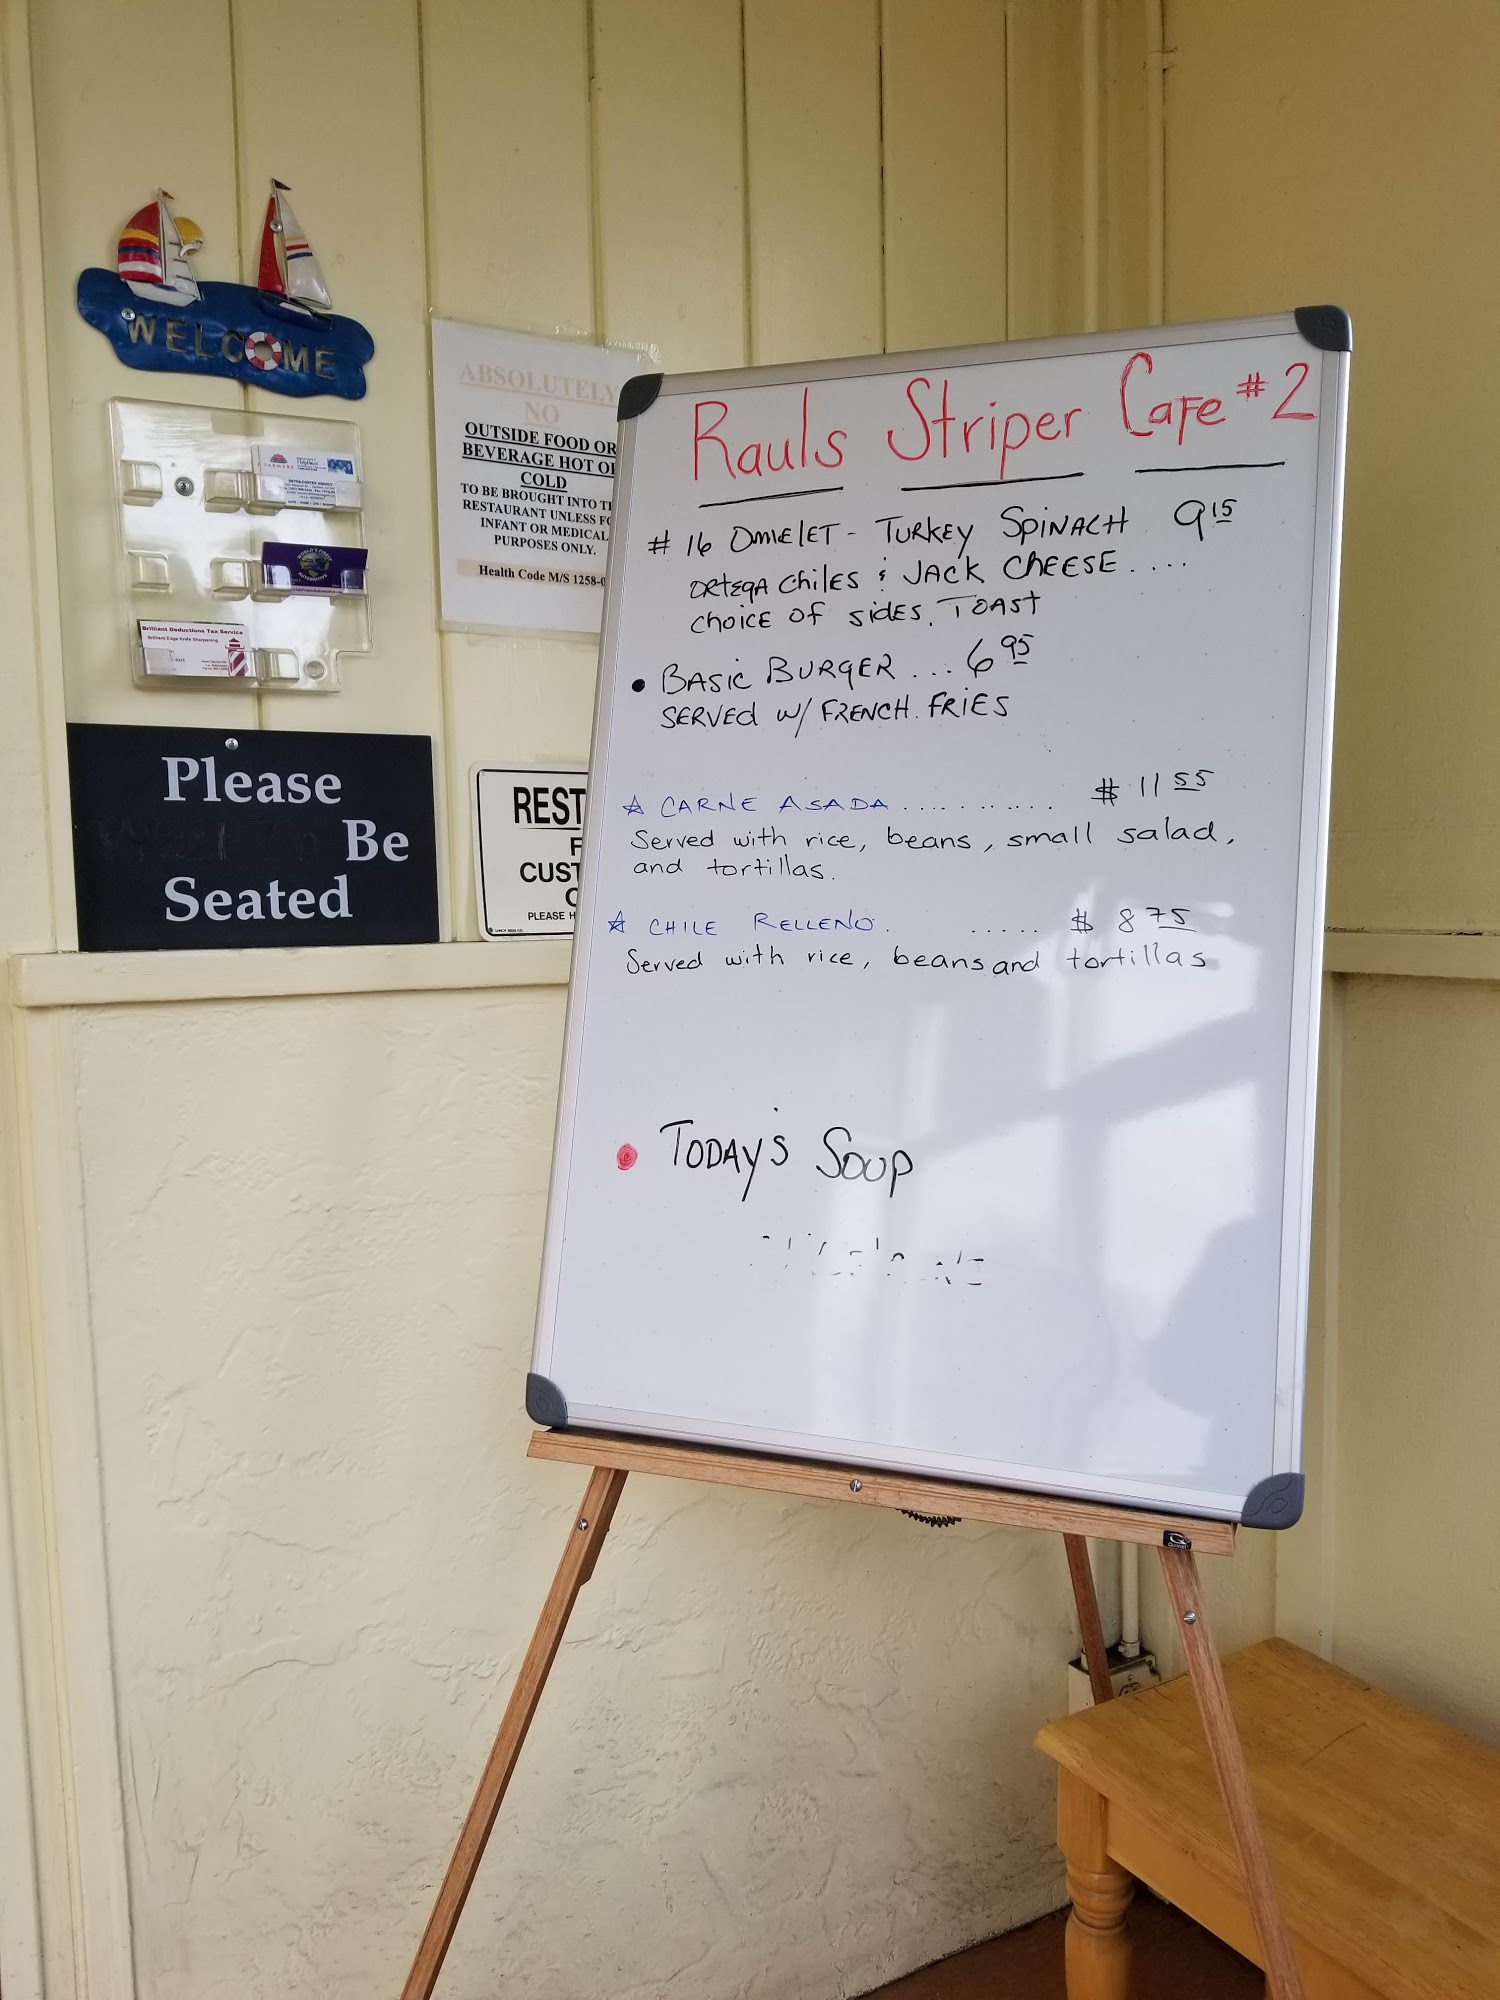 WELCOME
ABSOLUTELY
NO
OUTSIDE FOOD OR
BEVERAGE HOT OR
COLD
TO BE BROUGHT INTO TH
RESTAURANT UNLESS FO
INFANT OR MEDICAL
PURPOSES ONLY.
Health Code M/S 1258-0
FARMERS
WORLD'S FINEST
AUTOMOTIVE
Brilliant Deductions Tax Service
Brilliant Edge Knife Sharpening
Please
Be
Seated
REST
F
CUST
PLEASE H
Rauls Striper Cafe #2
#16 OMELET - TURKEY SPINACH 9 15
ORTEGA CHILES & JACK CHEESE....
CHOICE OF SIDES. TOAST
• BASIC BURGER ... 6 95
SERVED W/ FRENCH. FRIES
☆ CARNE ASADA ........... $ 11 55
Served with rice, beans, small salad,
and tortillas.
☆ CHILE RELLENO. ..... $ 8 75
Served with rice, beans and tortillas
• TODAY'S SOUP